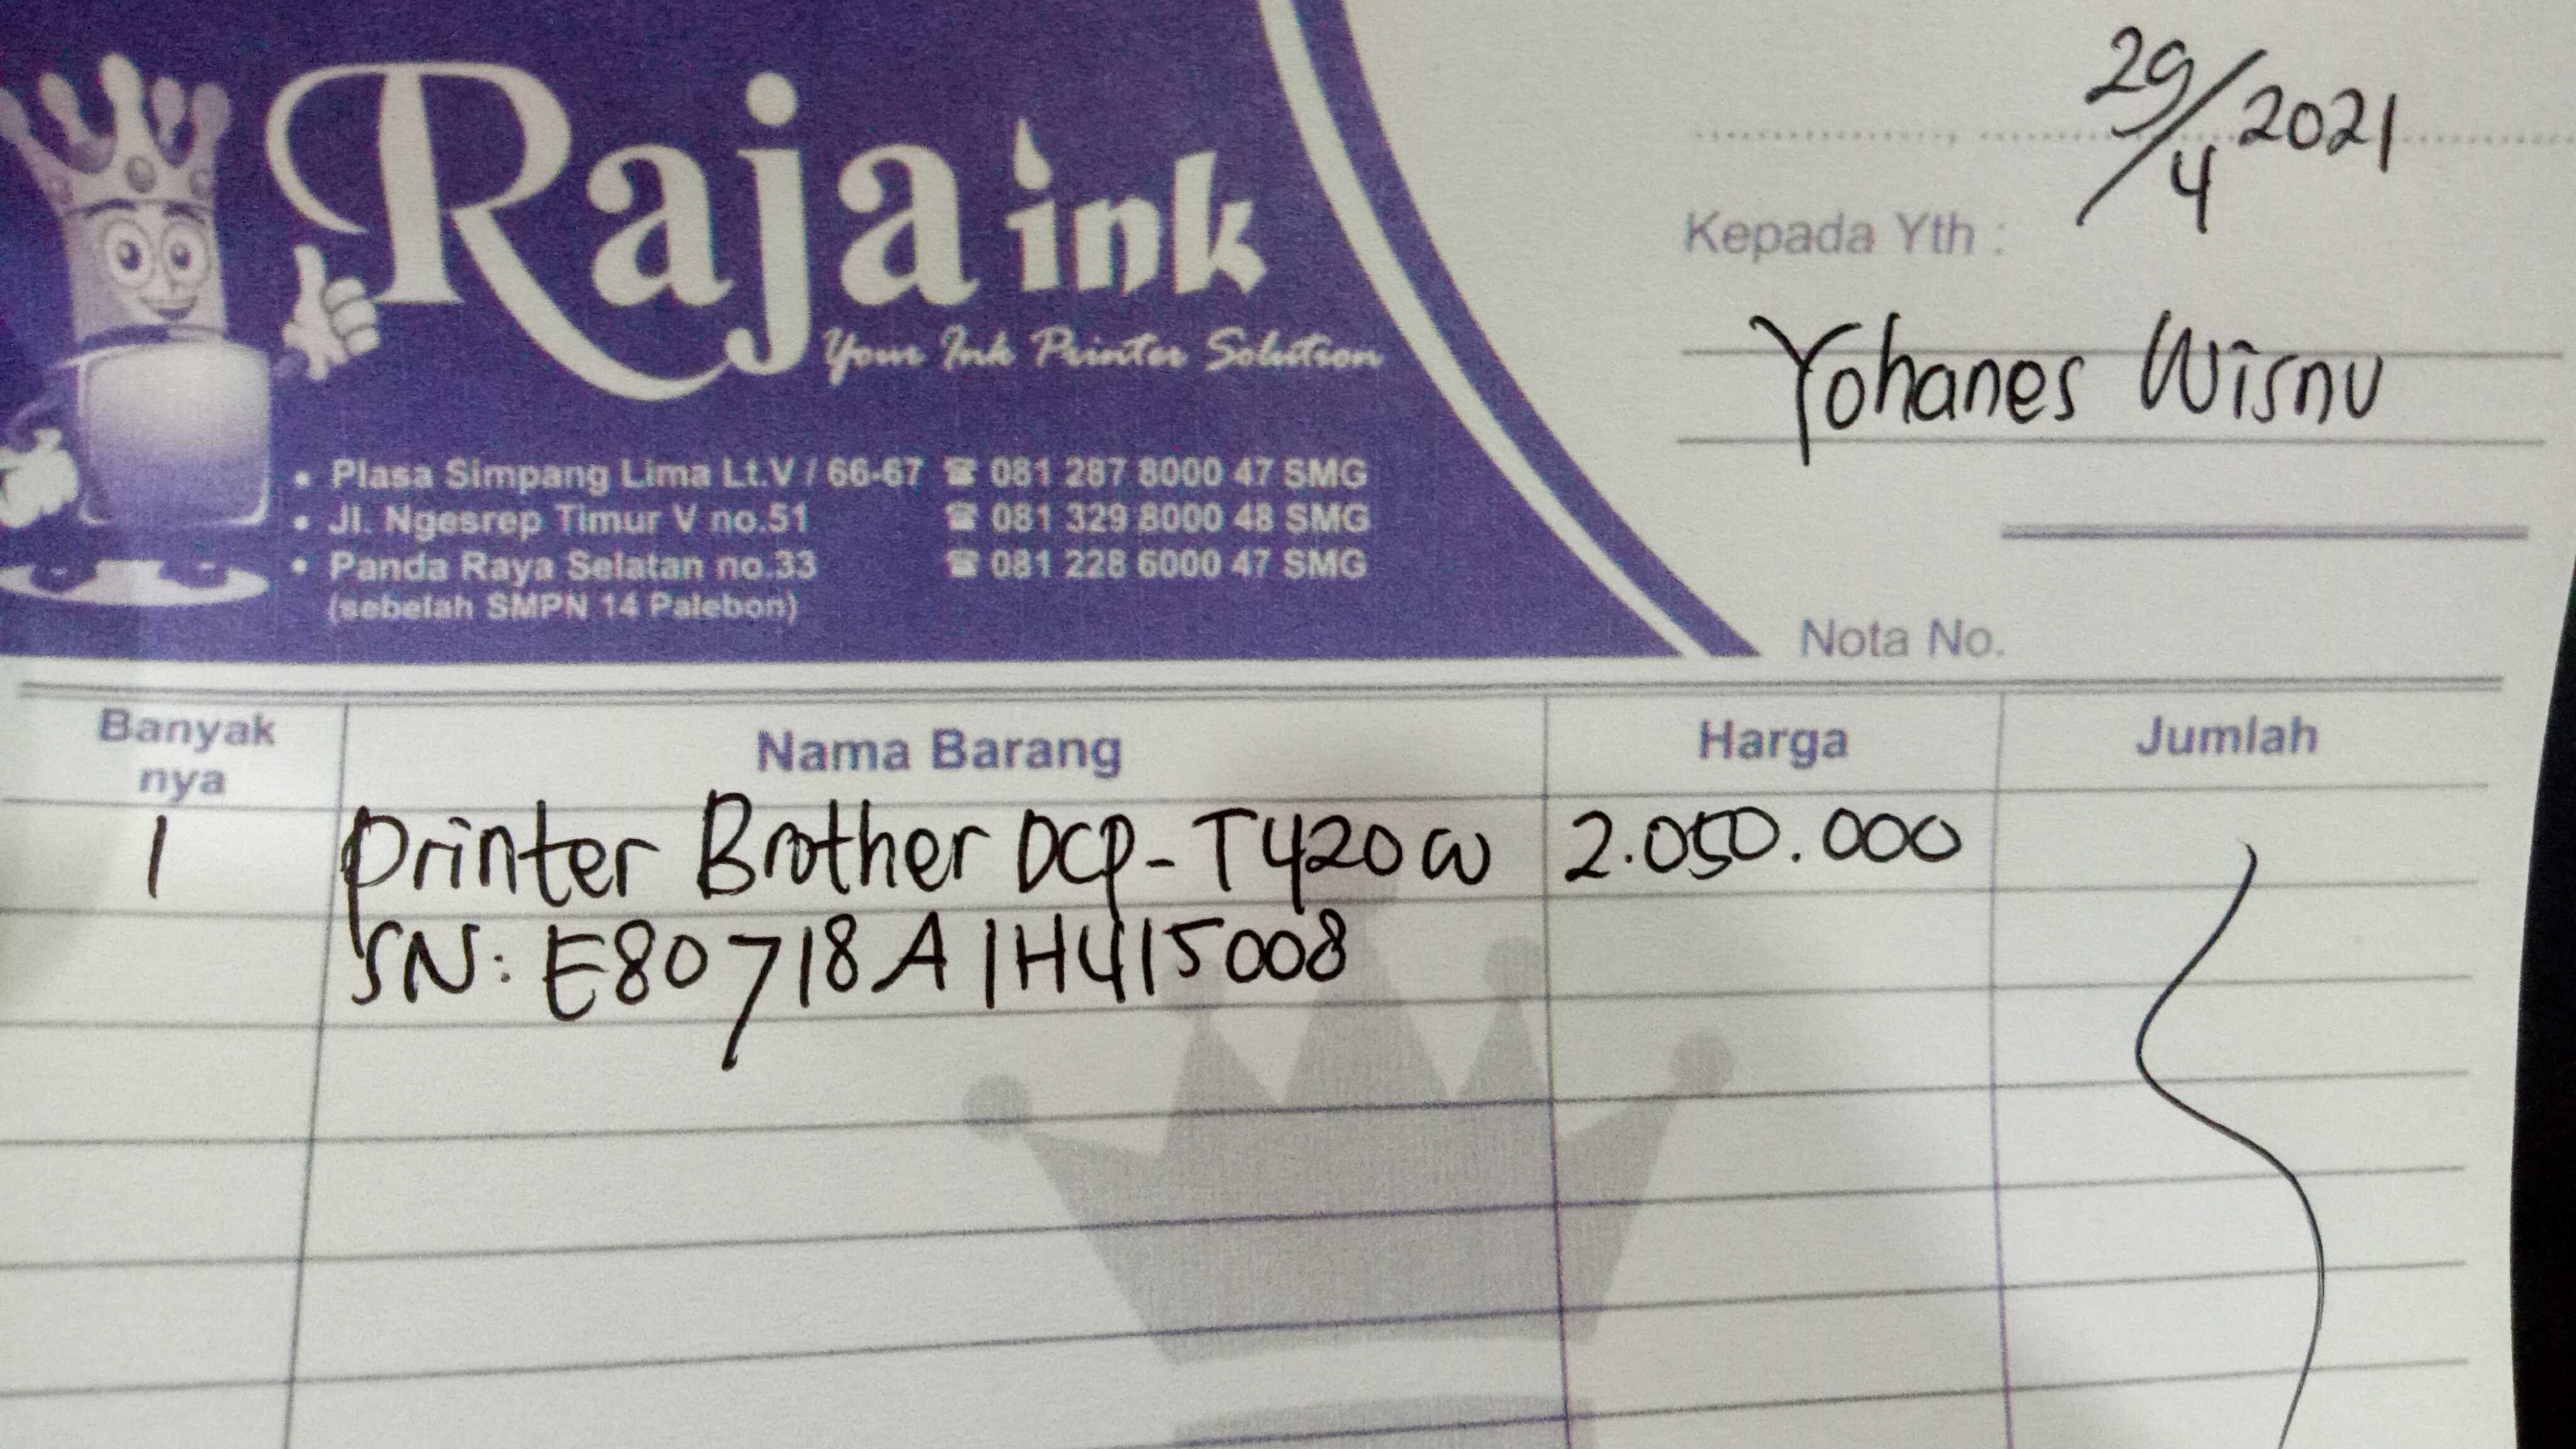 Raja ink
Your Ink Printer Solution
• Plasa Simpang Lima Lt.V / 66-67 ☎ 081 287 8000 47 SMG
• Jl. Ngesrep Timur V no.51 ☎ 081 329 8000 48 SMG
• Panda Raya Selatan no.33 ☎ 081 228 6000 47 SMG
(sebelah SMPN 14 Palebon)
29/4 2021
Kepada Yth :
Yohanes Wisnu
Nota No.
Banyak nya Nama Barang Harga Jumlah
1 Printer Brother DCP-T420W 2.050.000
SN: E80718A1H415008